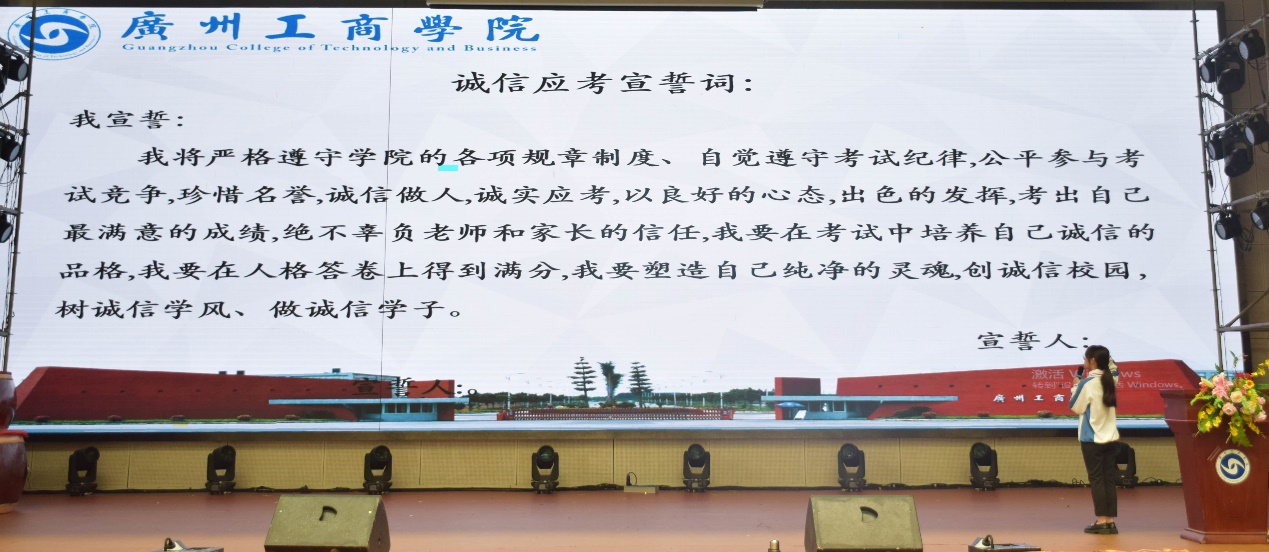 廣州工商學院
Guangzhou College of Technology and Business
诚信应考宣誓词:
我宣誓:
我将严格遵守学院的各项规章制度、自觉遵守考试纪律,公平参与考
试竞争,珍惜名誉,诚信做人,诚实应考,以良好的心态,出色的发挥,考出自己
最满意的成绩,绝不辜负老师和家长的信任,我要在考试中培养自己诚信的
品格,我要在人格答卷上得到满分,我要塑造自己纯净的灵魂,创诚信校园,
树诚信学风、做诚信学子。
宣誓人:
宣誓人:。
激活 Windows
转到 Windows。
廣州工商